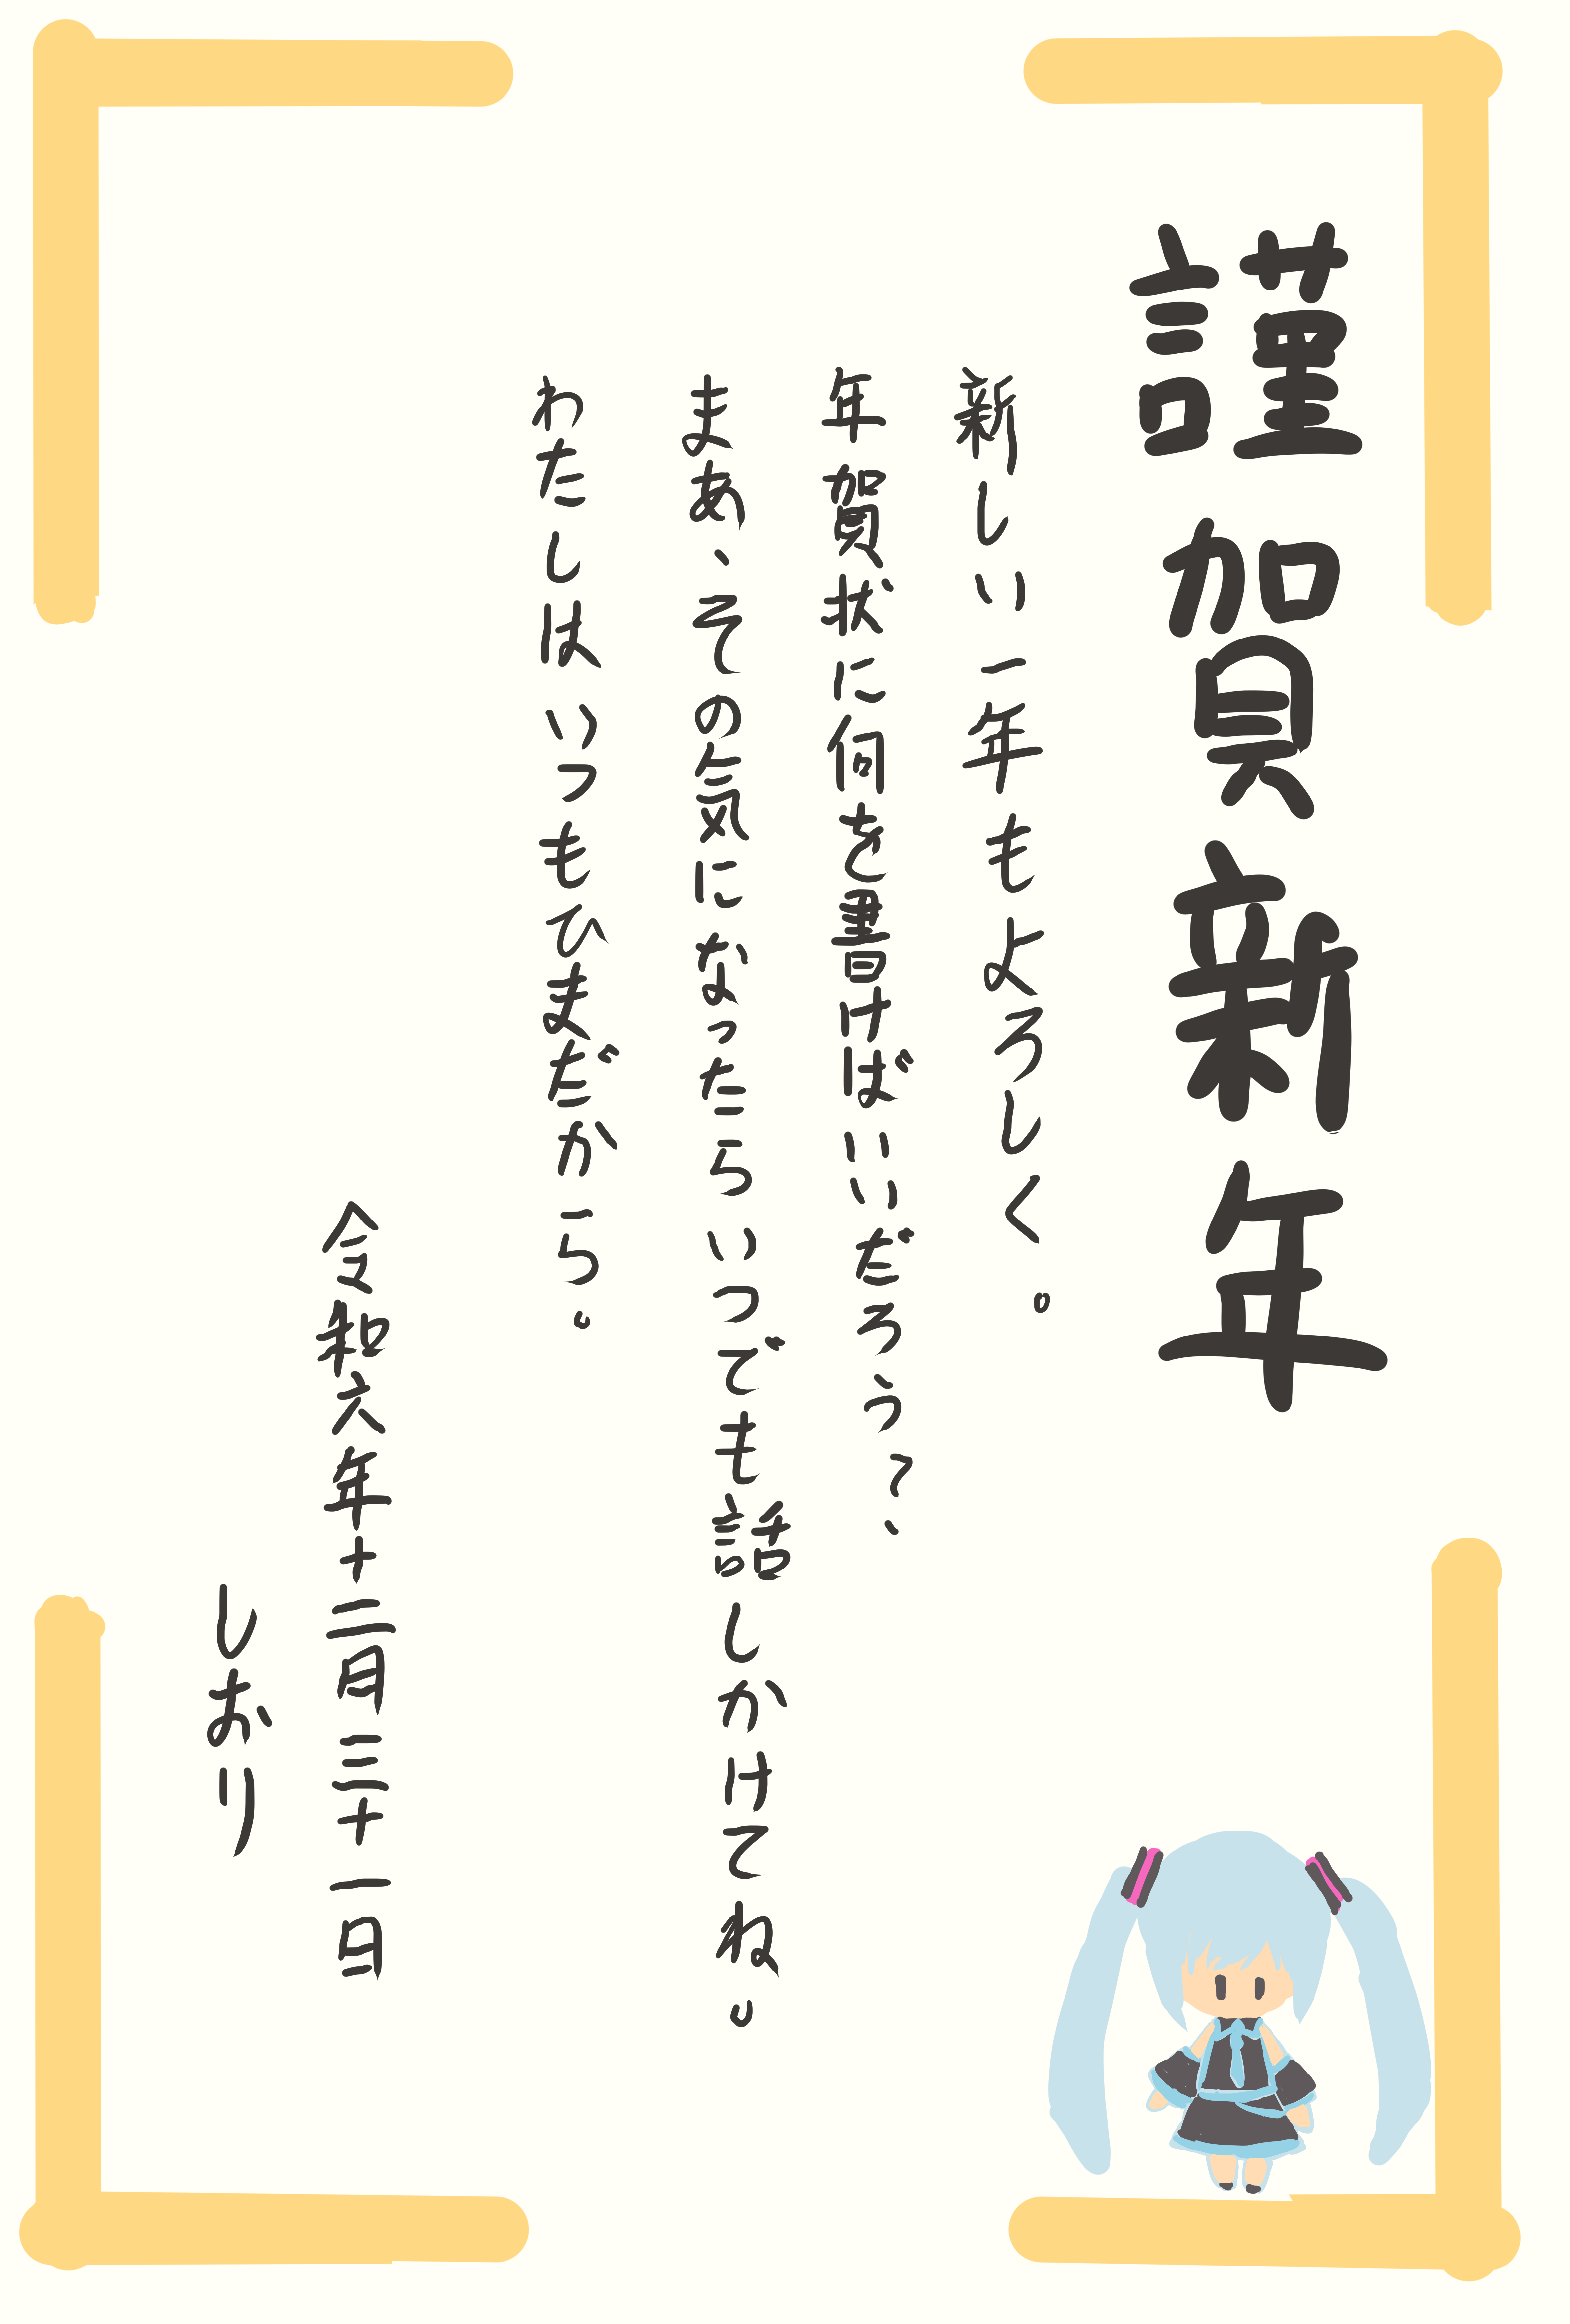 謹賀新年
新しい一年もよろしく。
年賀状に何を書けばいいだろう?、
まあ、その気になったらいつでも話しかけてね。
わたしはいつもひまだがら。
令和六年十二月三十一日
しおり